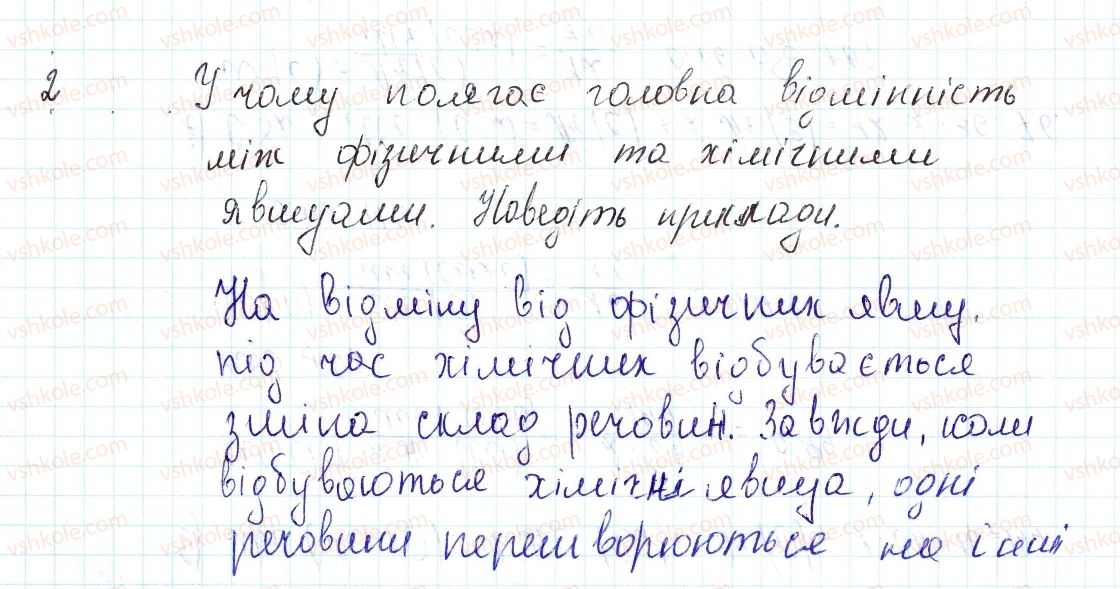 2 У чому полягає головна відмінність
між фізичними та хімічними
явищами. Наведіть приклади.
На відміну від фізичних явищ,
під час хімічних відбувається
зміна склад речовин. Завжди, коли
відбуваються хімічні явища, одні
речовини перетворюються на інші